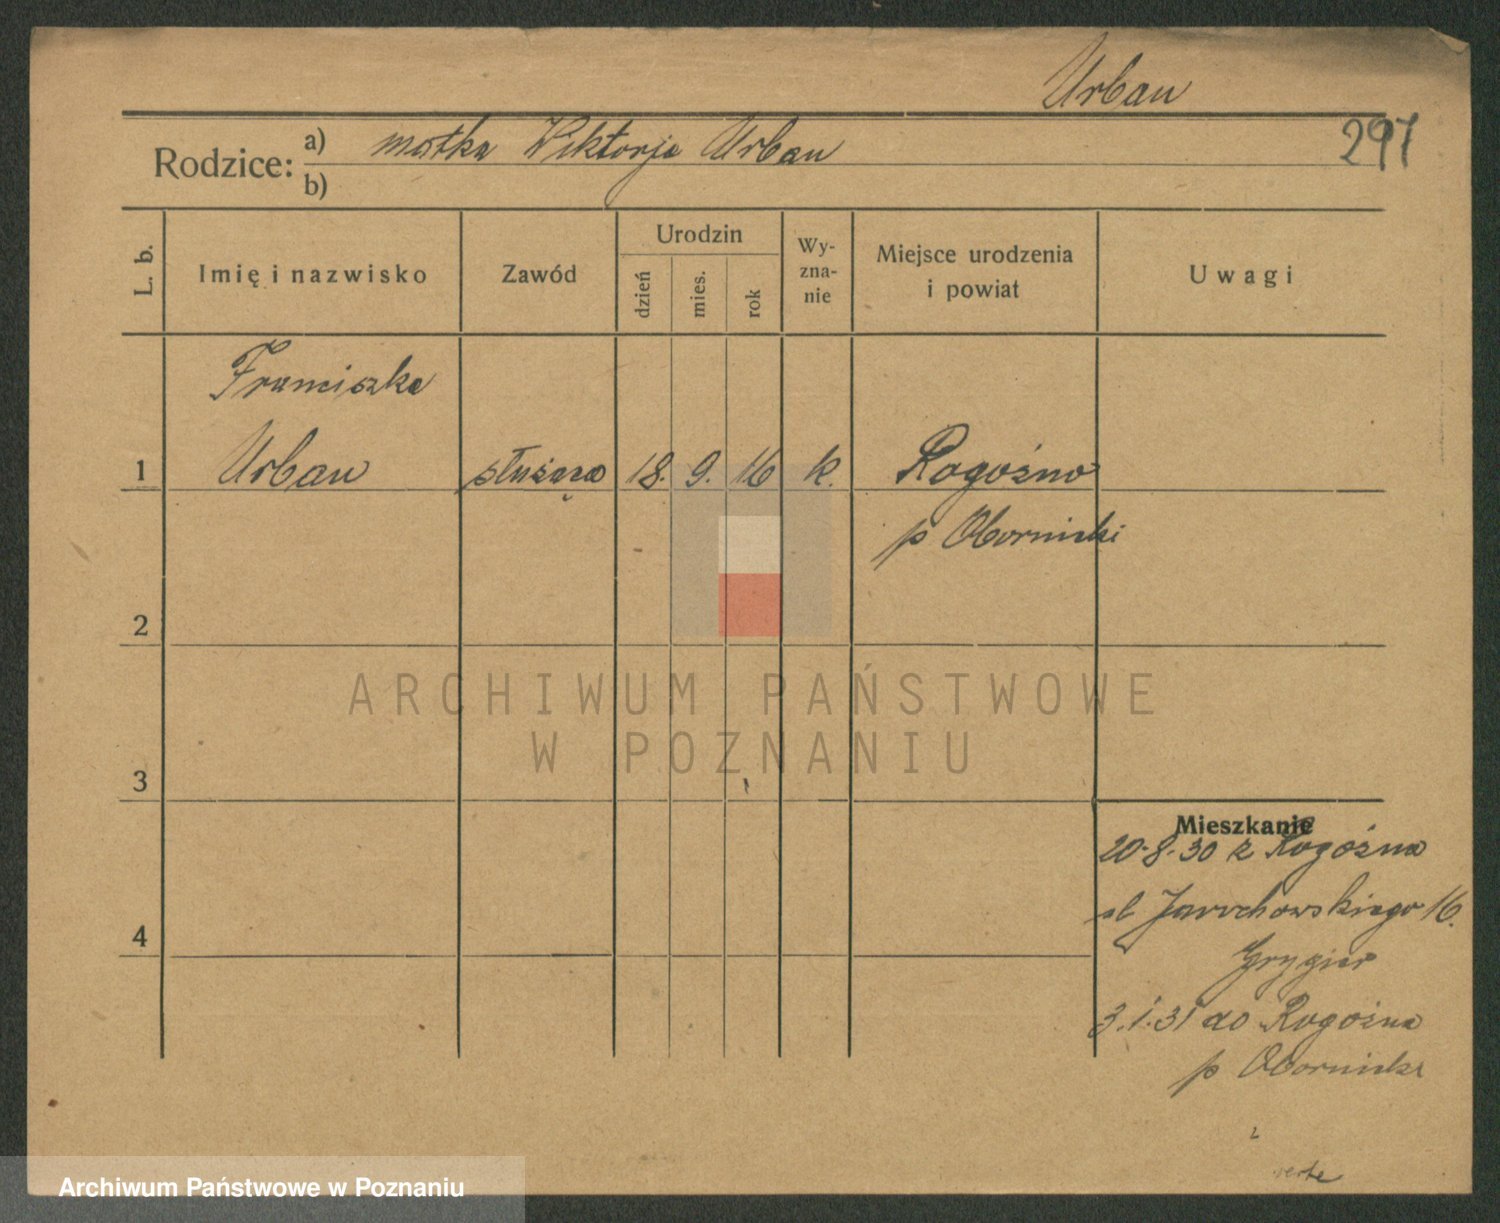 Urban
297
Rodzice: a) matka Wiktorja Urban
b)
L. b.
Imię i nazwisko
Zawód
Urodzin
dzień
mies.
rok
Wy-
zna-
nie
Miejsce urodzenia
i powiat
Uwagi
Franciszka
1 Urban służąca 18. 9. 16 k. Rogoźno
p Obornicki
2
3
4
Mieszkanie
20.8.30 z Rogoźna
Grygier
3.1.31 do Rogoźna
p Obornicki
verte
ARCHIWUM PAŃSTWOWE
W POZNANIU
Archiwum Państwowe w Poznaniu